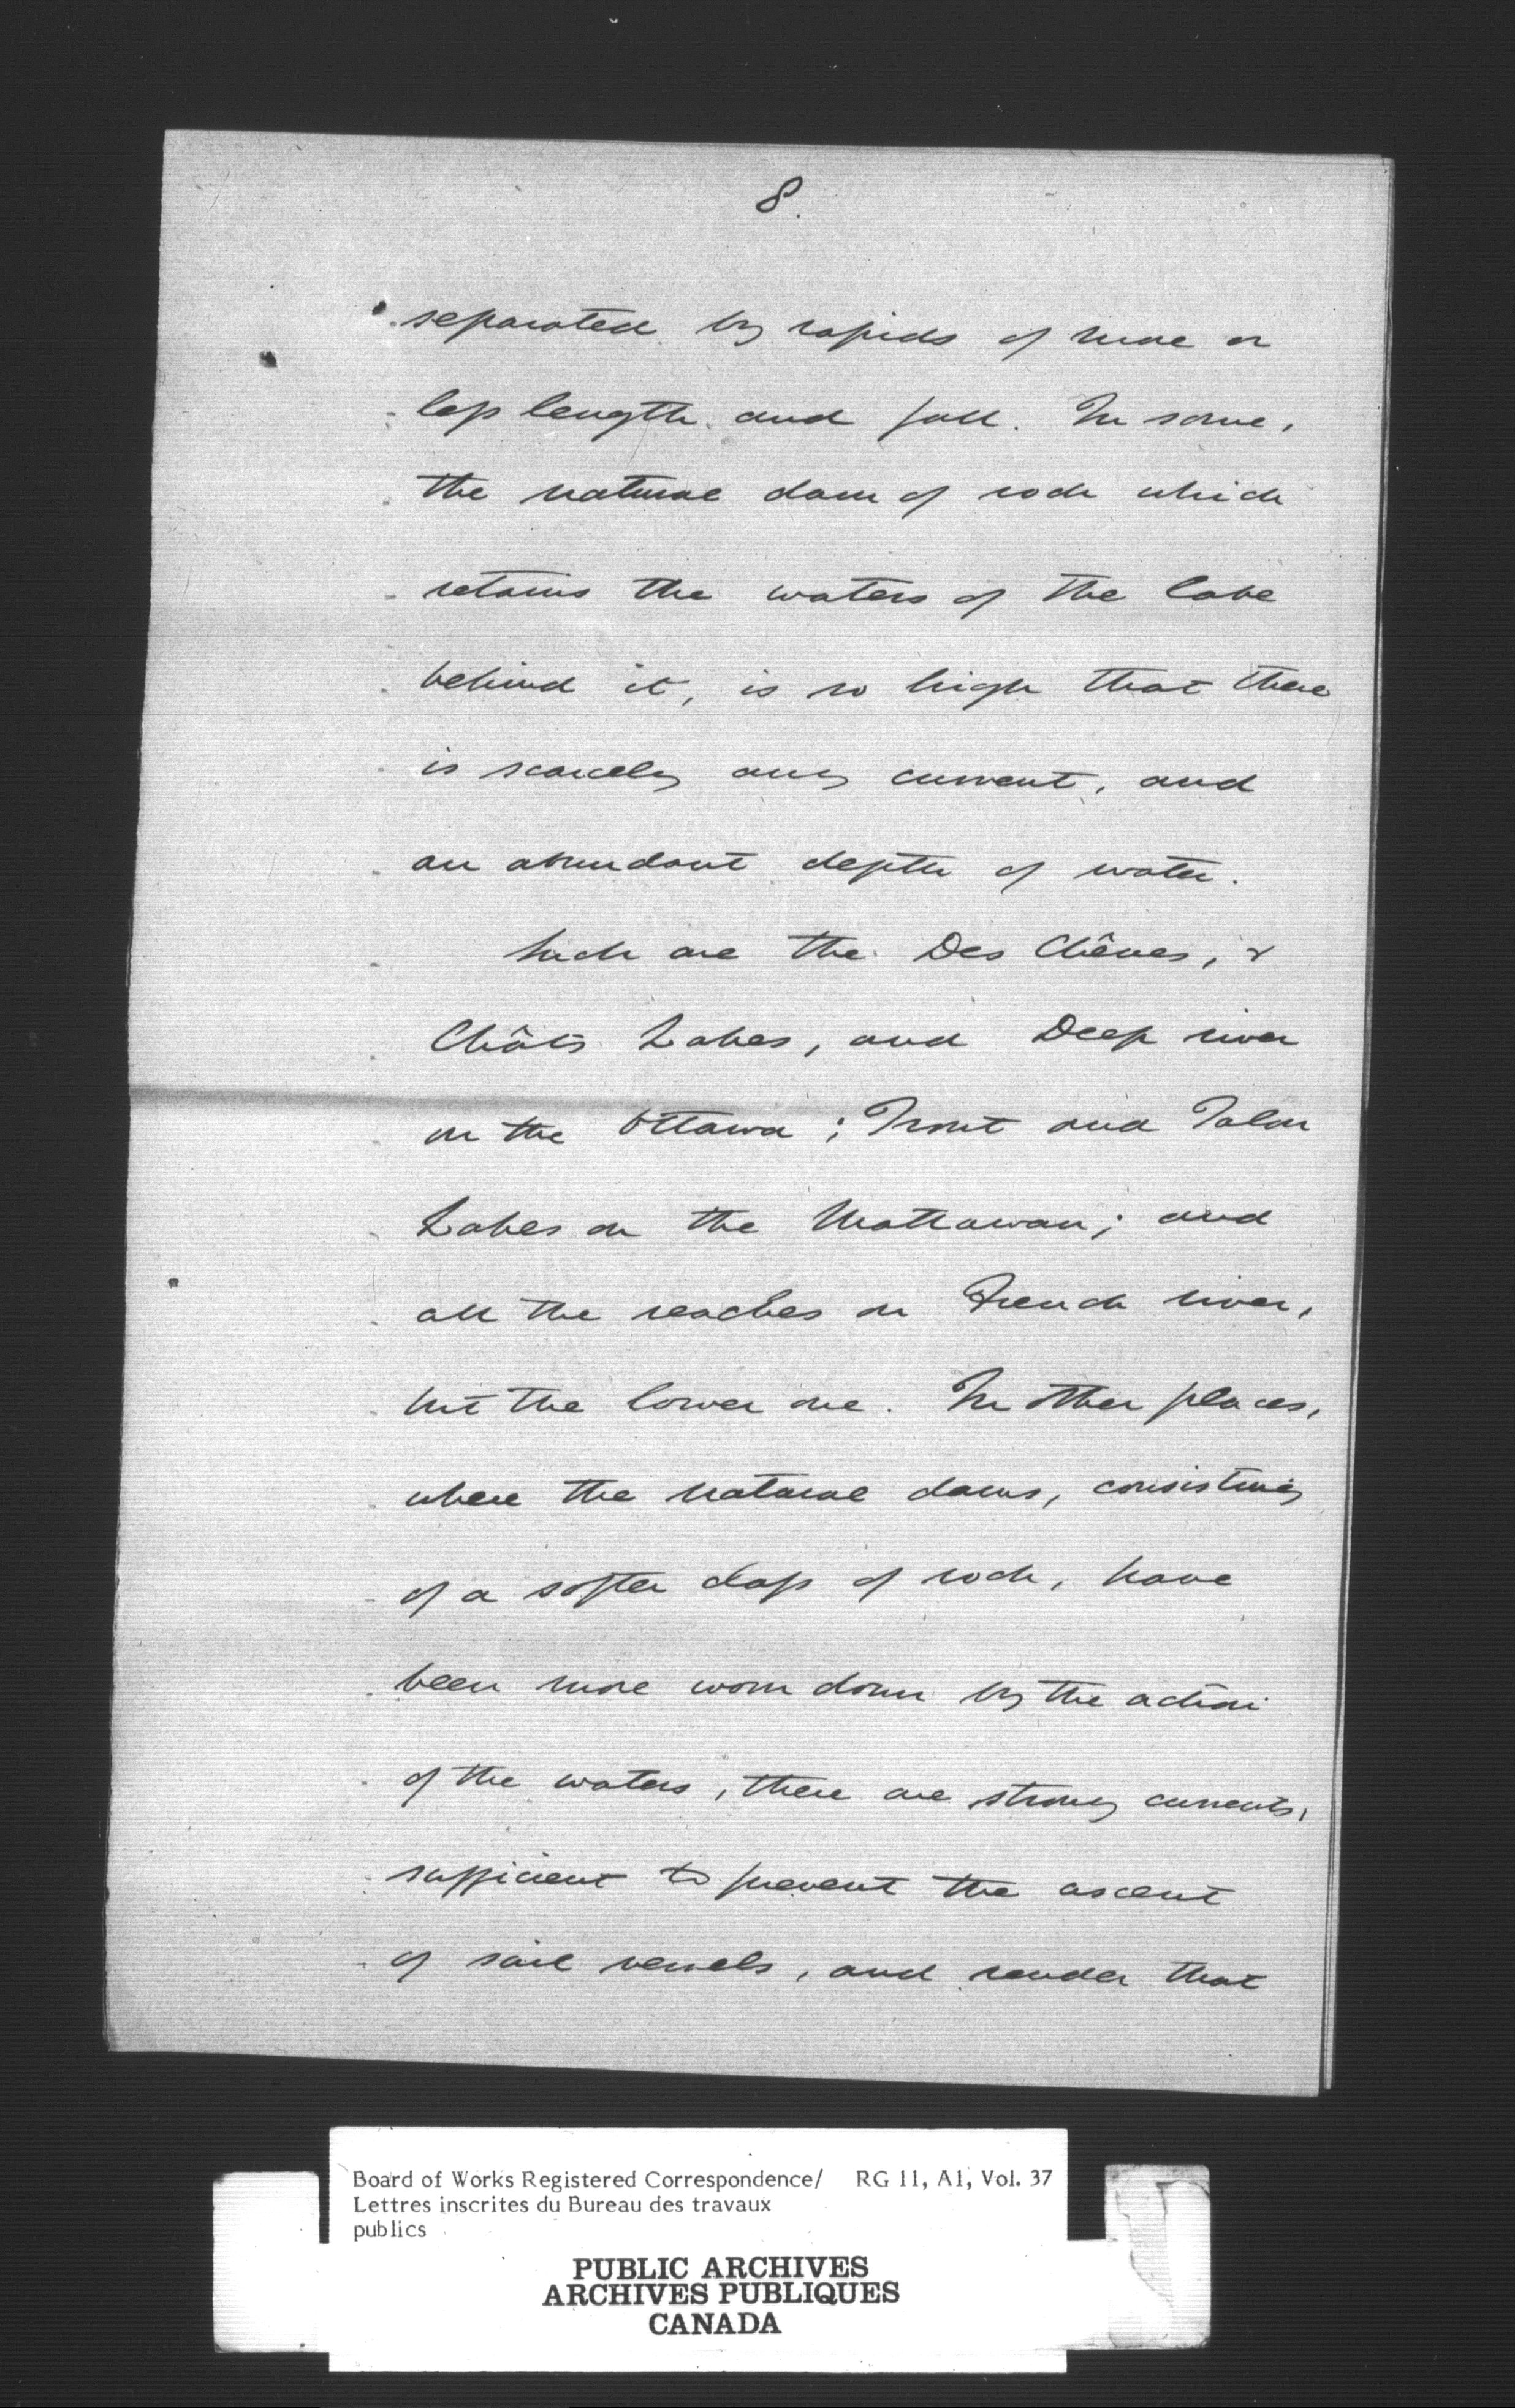 8.
separated by rapids of more or
less length and fall. In some,
the natural dam of rock which
retains the waters of the lake
behind it, is so high that there
is scarcely any current, and
an abundant depth of water.
Such are the Des Chênes, &
Châts Lakes, and Deep river
on the Ottawa; Trout and Talon
Lakes on the Mattawan; and
all the reaches on French river,
but the lower one. In other places,
where the natural dams, consisting
of a softer class of rock, have
been more worn down by the action
of the waters, there are strong currents,
sufficient to prevent the ascent
of sail vessels, and render that
Board of Works Registered Correspondence/ RG 11, A1, Vol. 37
Lettres inscrites du Bureau des travaux
publics
PUBLIC ARCHIVES
ARCHIVES PUBLIQUES
CANADA